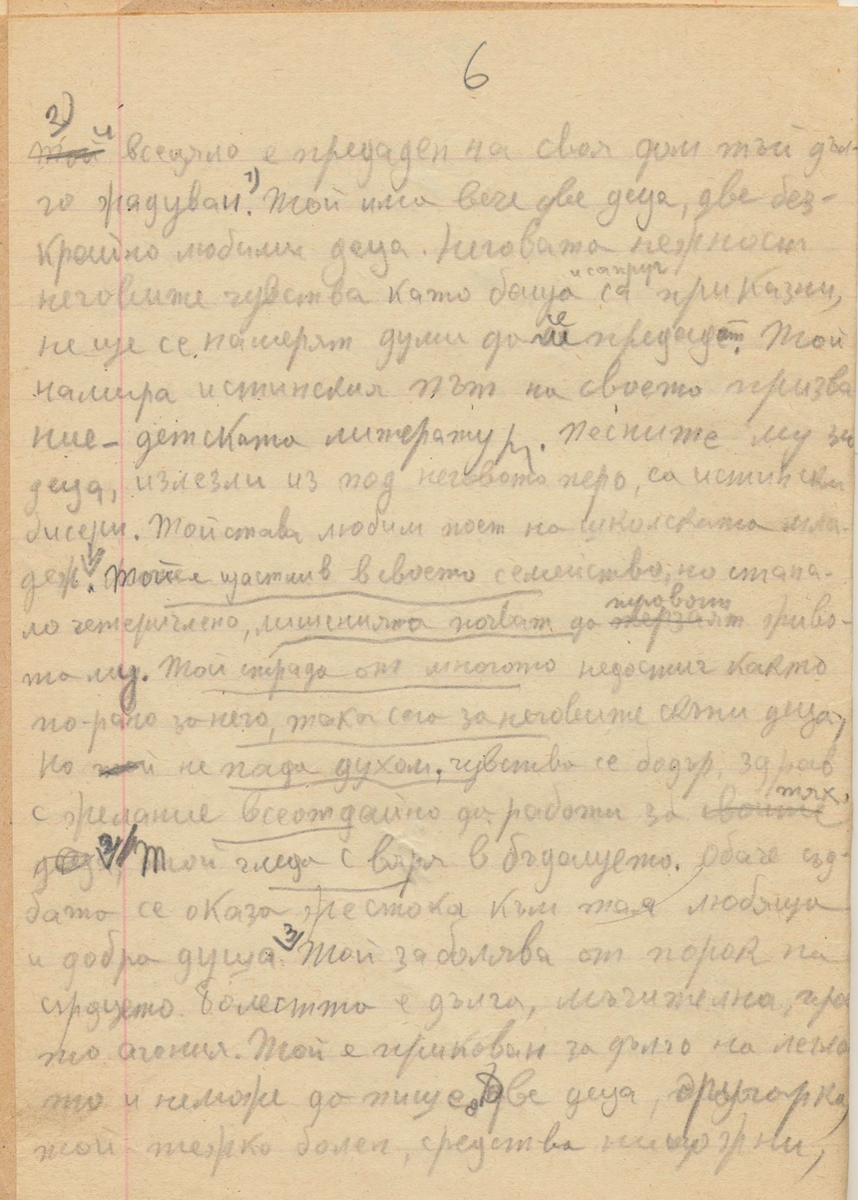 6
2) ~~Той~~ и всецяло е предаден на своя дом тъй дъл-
го жадуван. 1) Той има вече две деца, две без-
крайно любими деца. Неговата нежност
неговите чувства като баща и сапруг са приказни,
не ще се намерят думи да се предадат. Той
намира истинския път на своето призва
ние - детската литература. Песните му за
деца, излезли из под неговото перо, са истински
бисери. Той става любим поет на школската мла-
деж. Той е щастлив в своето семейство, но стана-
ло четеричлено, лишенията почват да тровят живо-
та му. Той страда от многото недостиг както
по-рано за него, така сега за неговите скъпи деца,
Но ~~той~~ не пада духом, чувства се бодър, здрав
с желание всеотдайно да работи за ~~своите~~ тях,
~~деца~~. 2) Той гледа с вяра в бъдащето. Обаче съд-
бата се оказа жестока към тая любяща
и добра душа. 3) Той заболява от порок на
сърдцето. Болестта е дълга, мъчителна,
то агония. Той е прикован за дълго на легло
то и неможе да пише. Две деца, другарка,
той тежко болен, средства нищожни,